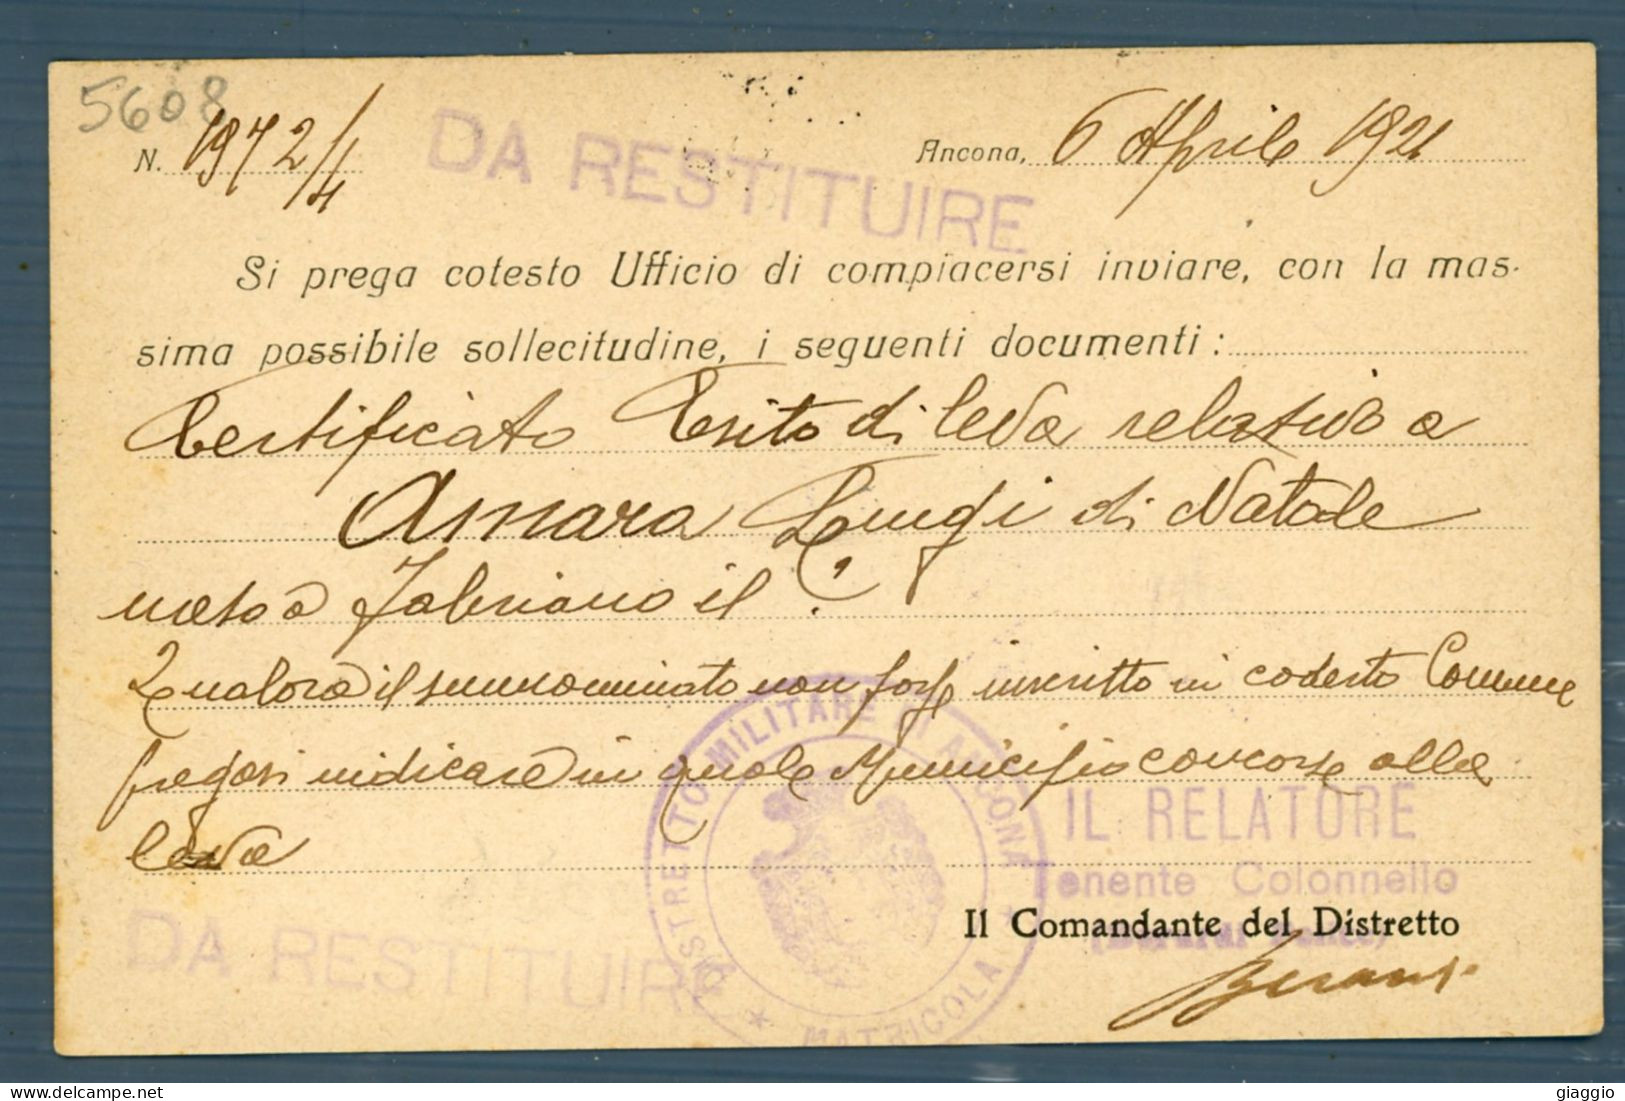 5608
N. 1972/4
DA RESTITUIRE
Ancona, 6 Aprile 1921
Si prega cotesto Ufficio di compiacersi inviare, con la mas-
sima possibile sollecitudine, i seguenti documenti :
Certificato Esito di leva relativo a
Amara Luigi di Natale
nato a Fabriano il ?
Qualora il summominato non fosse inscritto in codesto Comune
pregasi indicare in quale Municipio concorse alla
leva
DISTRETTO MILITARE DI ANCONA
★ MATRICOLA ★
IL RELATORE
Tenente Colonnello
Il Comandante del Distretto
DA RESTITUIRE
giaggio